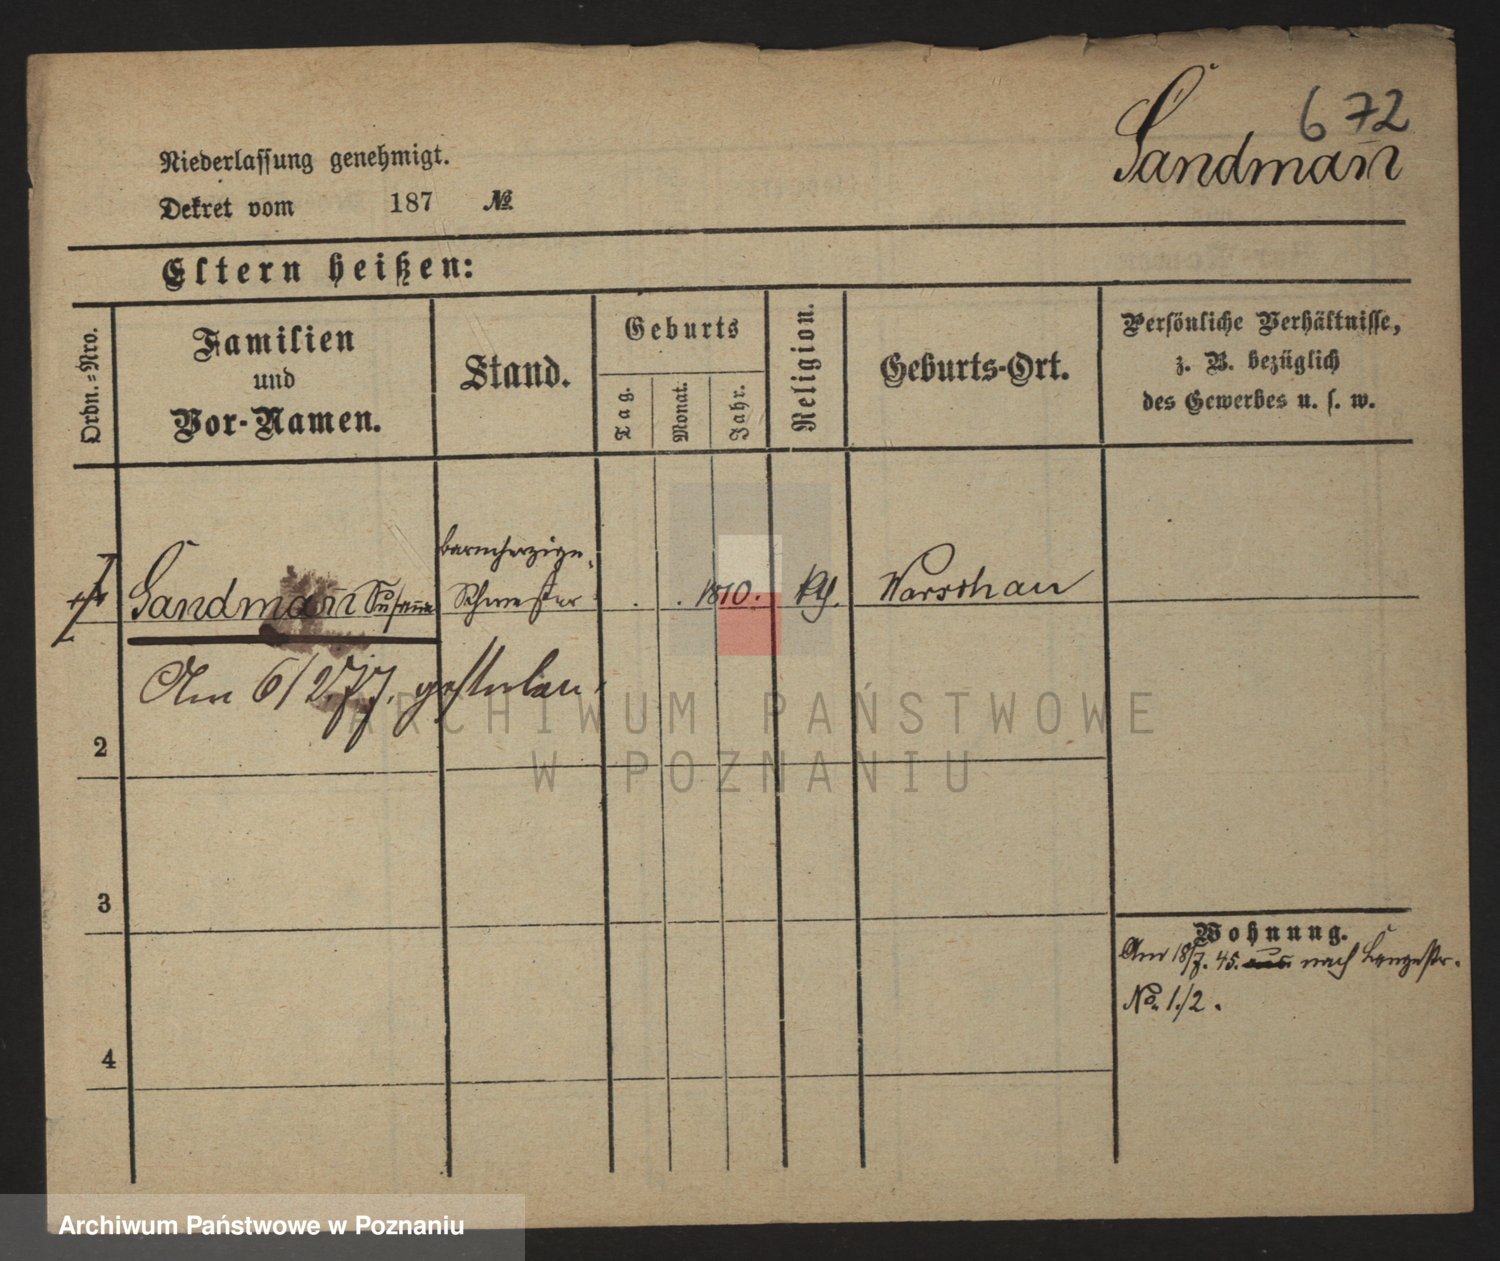 672
Sandman̄
Niederlassung genehmigt.
Dekret vom 187 №
Eltern heißen:
Ordn.-Nro.
Familien
und
Vor-Namen.
Stand.
Geburts
Tag.
Monat.
Jahr.
Religion.
Geburts-Ort.
Persönliche Verhältnisse,
z. B. bezüglich
des Gewerbes u. s. w.
barmherzige
Sandman̄ Susan̄a Schwester 1810. kth. Warschau
Am 6/2 77. gestorben
2
3
4
Wohnung.
Am 18/7. 45. aus nach Langestr.
No. 1./2.
ARCHIWUM PAŃSTWOWE
W POZNANIU
Archiwum Państwowe w Poznaniu